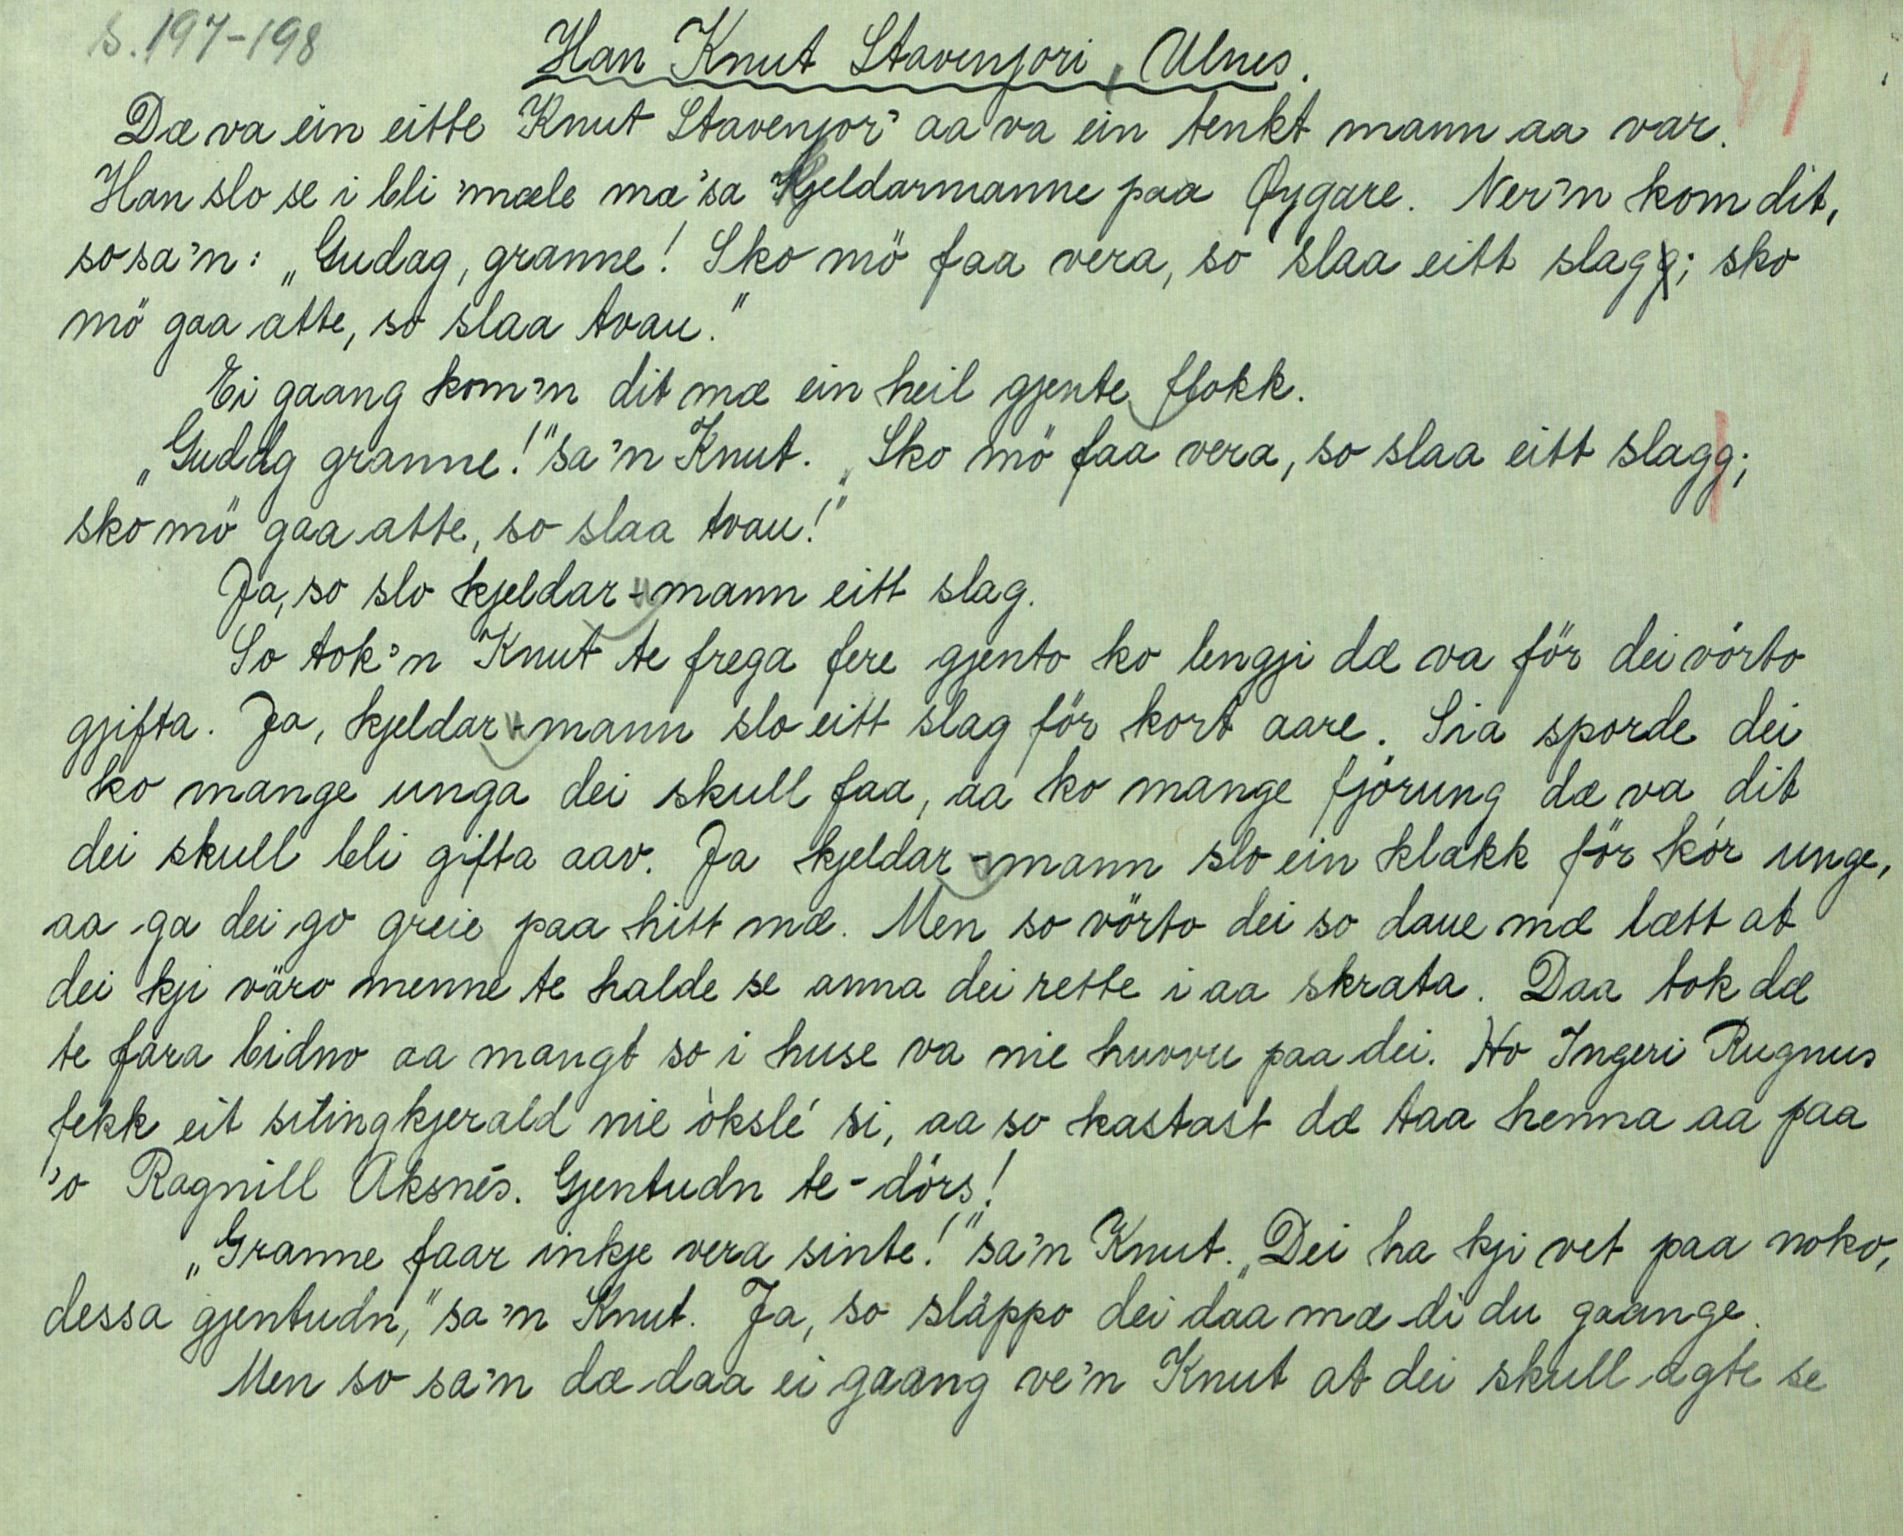 s. 197-198
49
Han Knut Stavenjori, Ulnes.
Dæ va ein eitte Knut Stavenjor' aa va ein tenkt mann aa var.
Han slo se i bli 'mæle mæ 'sa Kjeldarmanne paa Øygare. Ner'n kom dit,
so sa'n: „Gudag, granne! Sko mö faa vera, so slaa eitt slagg; sko
mö gaa atte, so slaa tvau."
Ei gaang kom'n dit mæ ein heil gjente flokk.
„Gudag granne!" sa'n Knut. „Sko mö faa vera, so slaa eitt slagg;
sko mö gaa atte, so slaa tvau!"
Ja, so slo kjeldar-mann eitt slag.
So tok'n Knut te frega fere gjento ko lengji dæ va för dei vörto
gjifta. Ja, kjeldar-mann slo eitt slag för kort aare. Sia sporde dei
ko mange unga dei skull faa, aa ko mange fjörung dæ va dit
dei skull bli gifta aav. Ja kjeldar-mann slo ein klakk för kór unge,
aa ga dei go greie paa hitt mæ. Men so vörto dei so daue mæ lætt at
dei kji väro menne te halde se anna dei rette i aa skrata. Daa tok dæ
te fara bidno aa mangt so i huse va nie huvvu paa dei. Ho Ingeri Rugnus
fekk eit sitingkjerald nie òkslé si, aa so kastast dæ taa henna aa paa
'o Ragnill Aksnés. Gjentudn te-dörs!
„Granne faar inkje vera sinte!" sa'n Knut. „Dei ha kji vet paa noko,
dessa gjentudn," sa'n Knut. Ja, so släppo dei daa mæ di du gaange.
Men so sa'n dæ daa ei gaang ve'n Knut at dei skull agte se